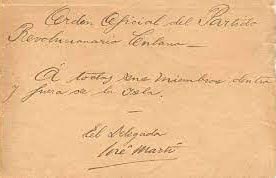 Orden Oficial del Partido
Revolucionario Cubano —
A todos sus miembros dentro
y fuera de la Isla.
El Delegado
José Martí